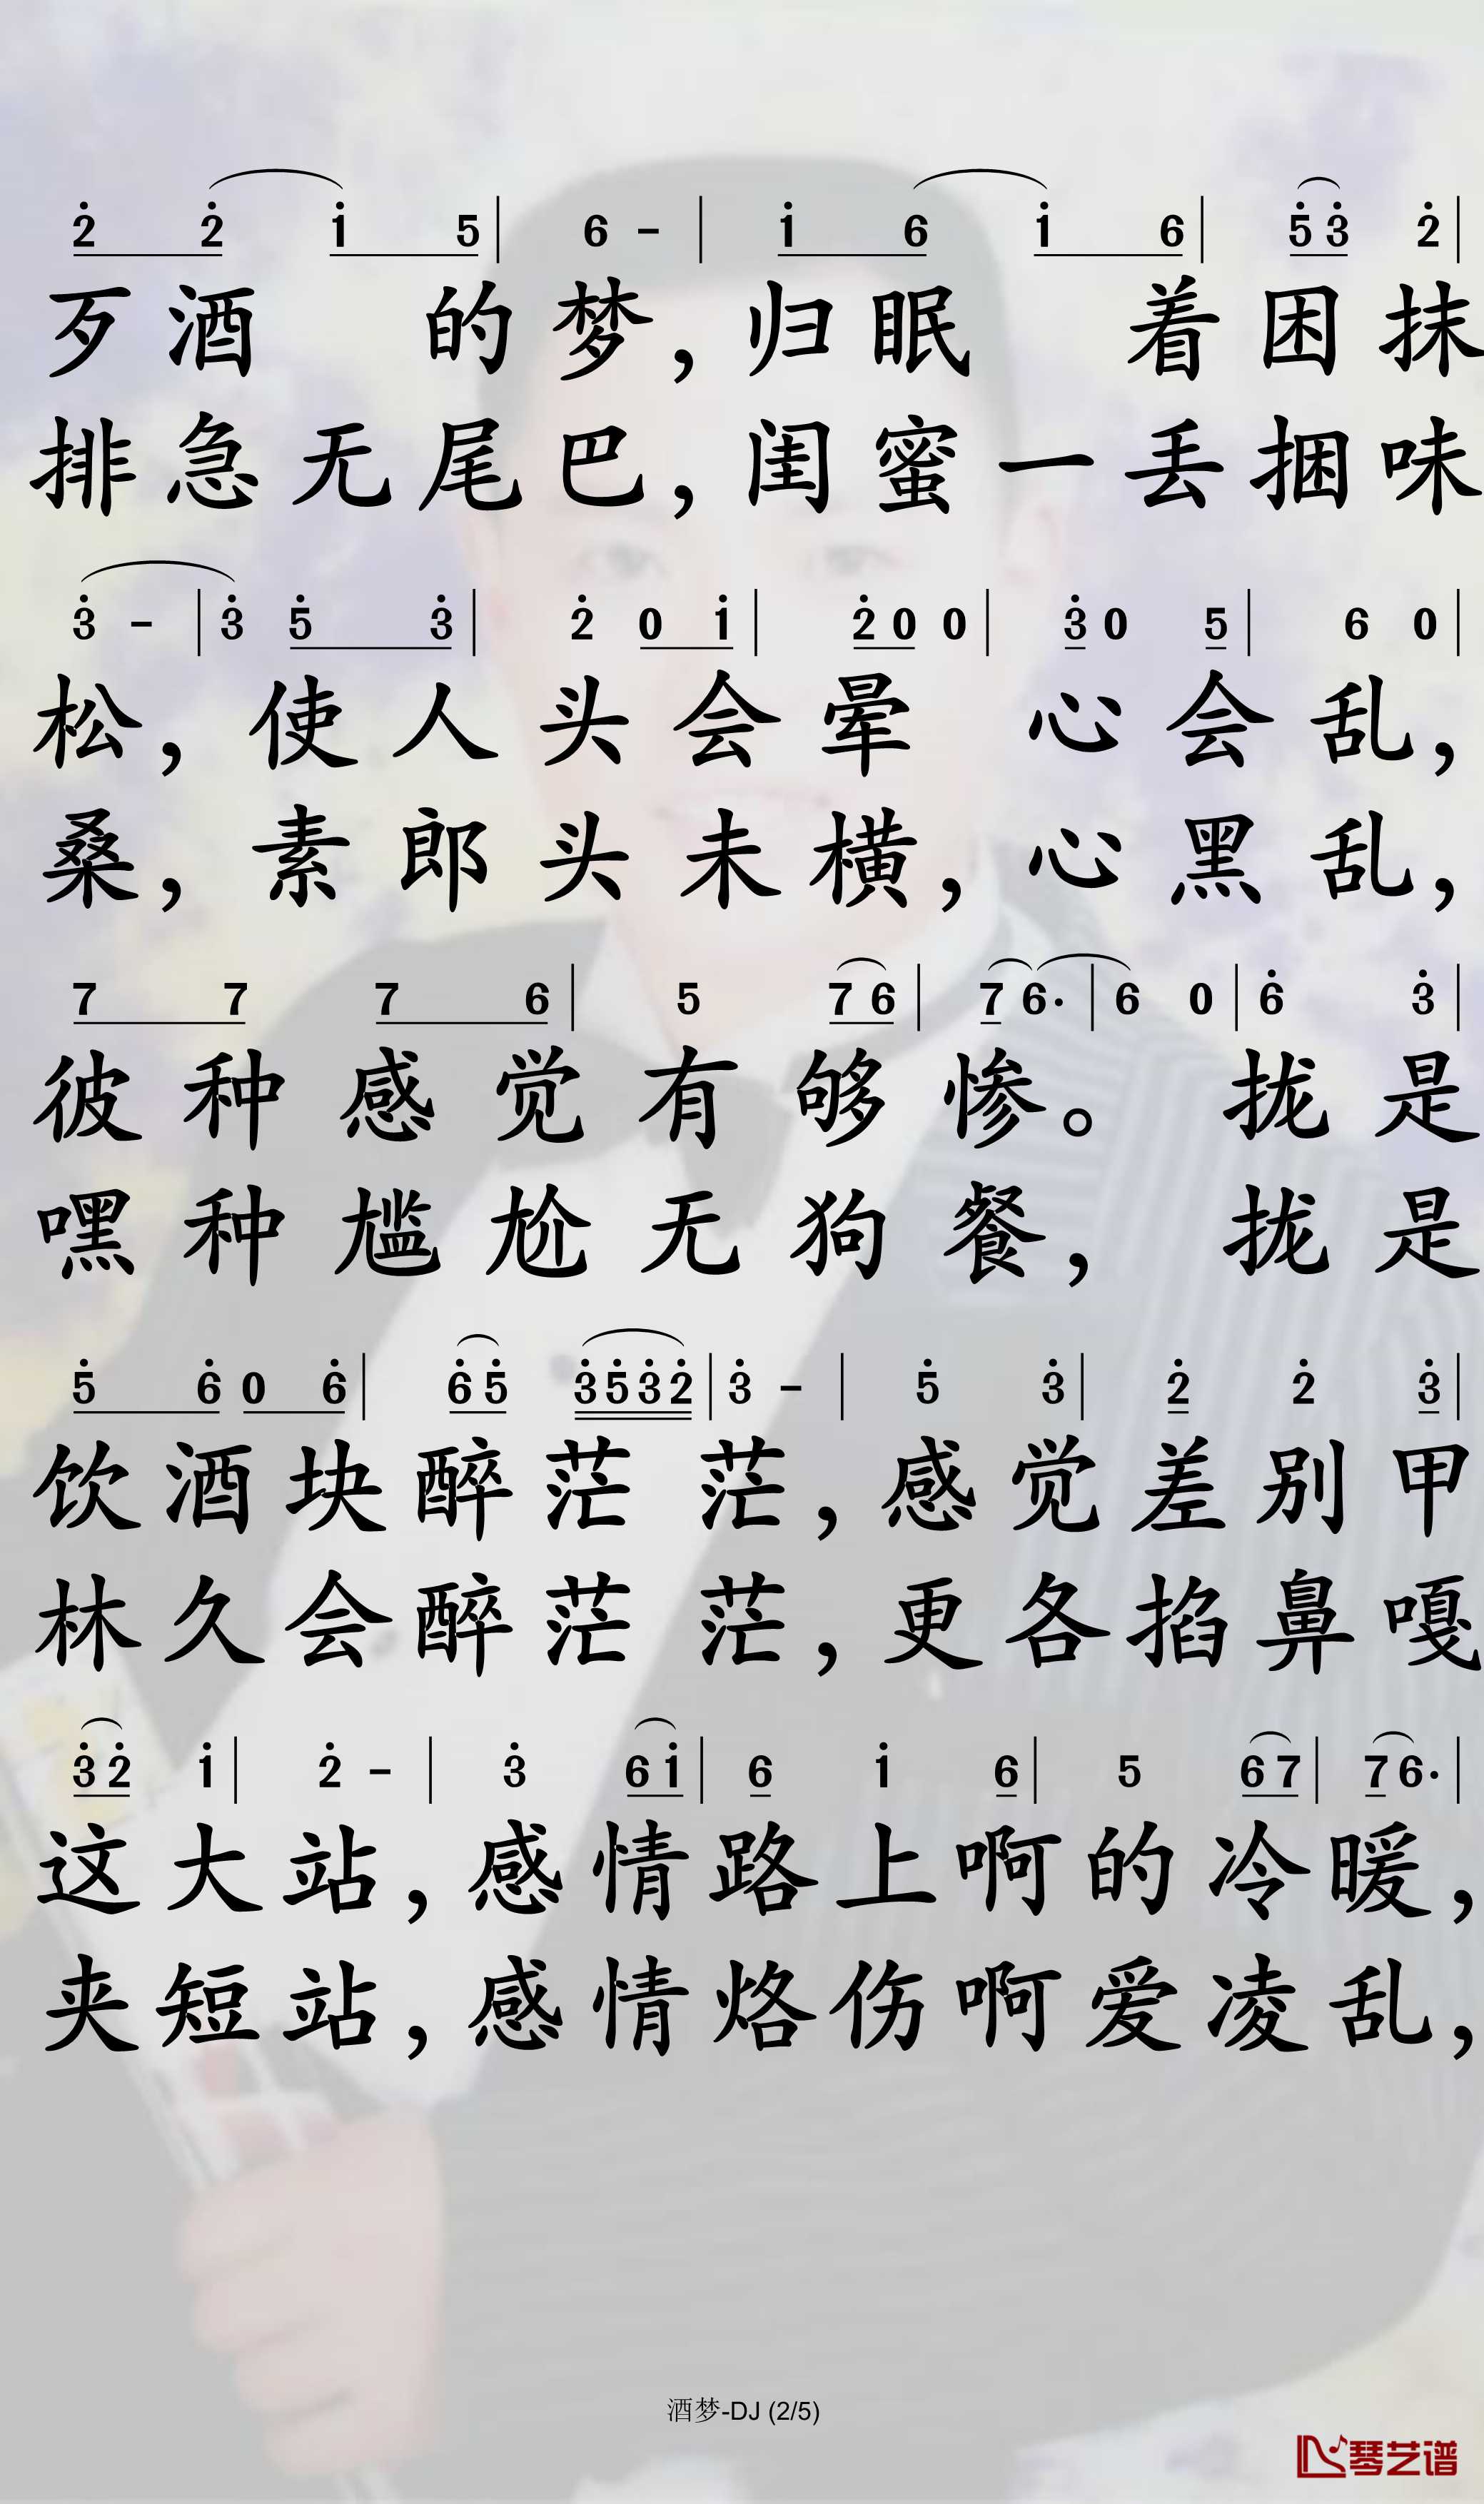 2̇ 2̇ 1̇ 5 | 6 - | 1̇ 6 1̇ 6 | 5̇ 3̇ 2̇ |
歹酒 的梦，归眠 着困抹
排急无尾巴，闺蜜一丢捆味
3̇ - | 3̇ 5̇ 3̇ | 2̇ 0 1̇ | 2̇ 0 0 | 3̇ 0 5 | 6 0 |
松，使人头会晕 心会乱，
桑，素郎头未横，心黑乱，
7 7 7 6 | 5 7 6 | 7 6· | 6 0 | 6̇ 3̇ |
彼种感觉有够惨。 拢是
嘿种尴尬无狗餐， 拢是
5̇ 6̇ 0 6̇ | 6̇ 5̇ 3̇ 5̇ 3̇ 2̇ | 3̇ - | 5̇ 3̇ | 2̇ 2̇ 3̇ |
饮酒块醉茫茫，感觉差别甲
林久会醉茫茫，更各掐鼻嘎
3̇ 2̇ 1̇ | 2̇ - | 3̇ 6 1̇ | 6 1̇ 6 | 5 6 7 | 7 6· |
这大站，感情路上啊的冷暖，
夹短站，感情烙伤啊爱凌乱，
酒梦-DJ (2/5)
琴艺谱